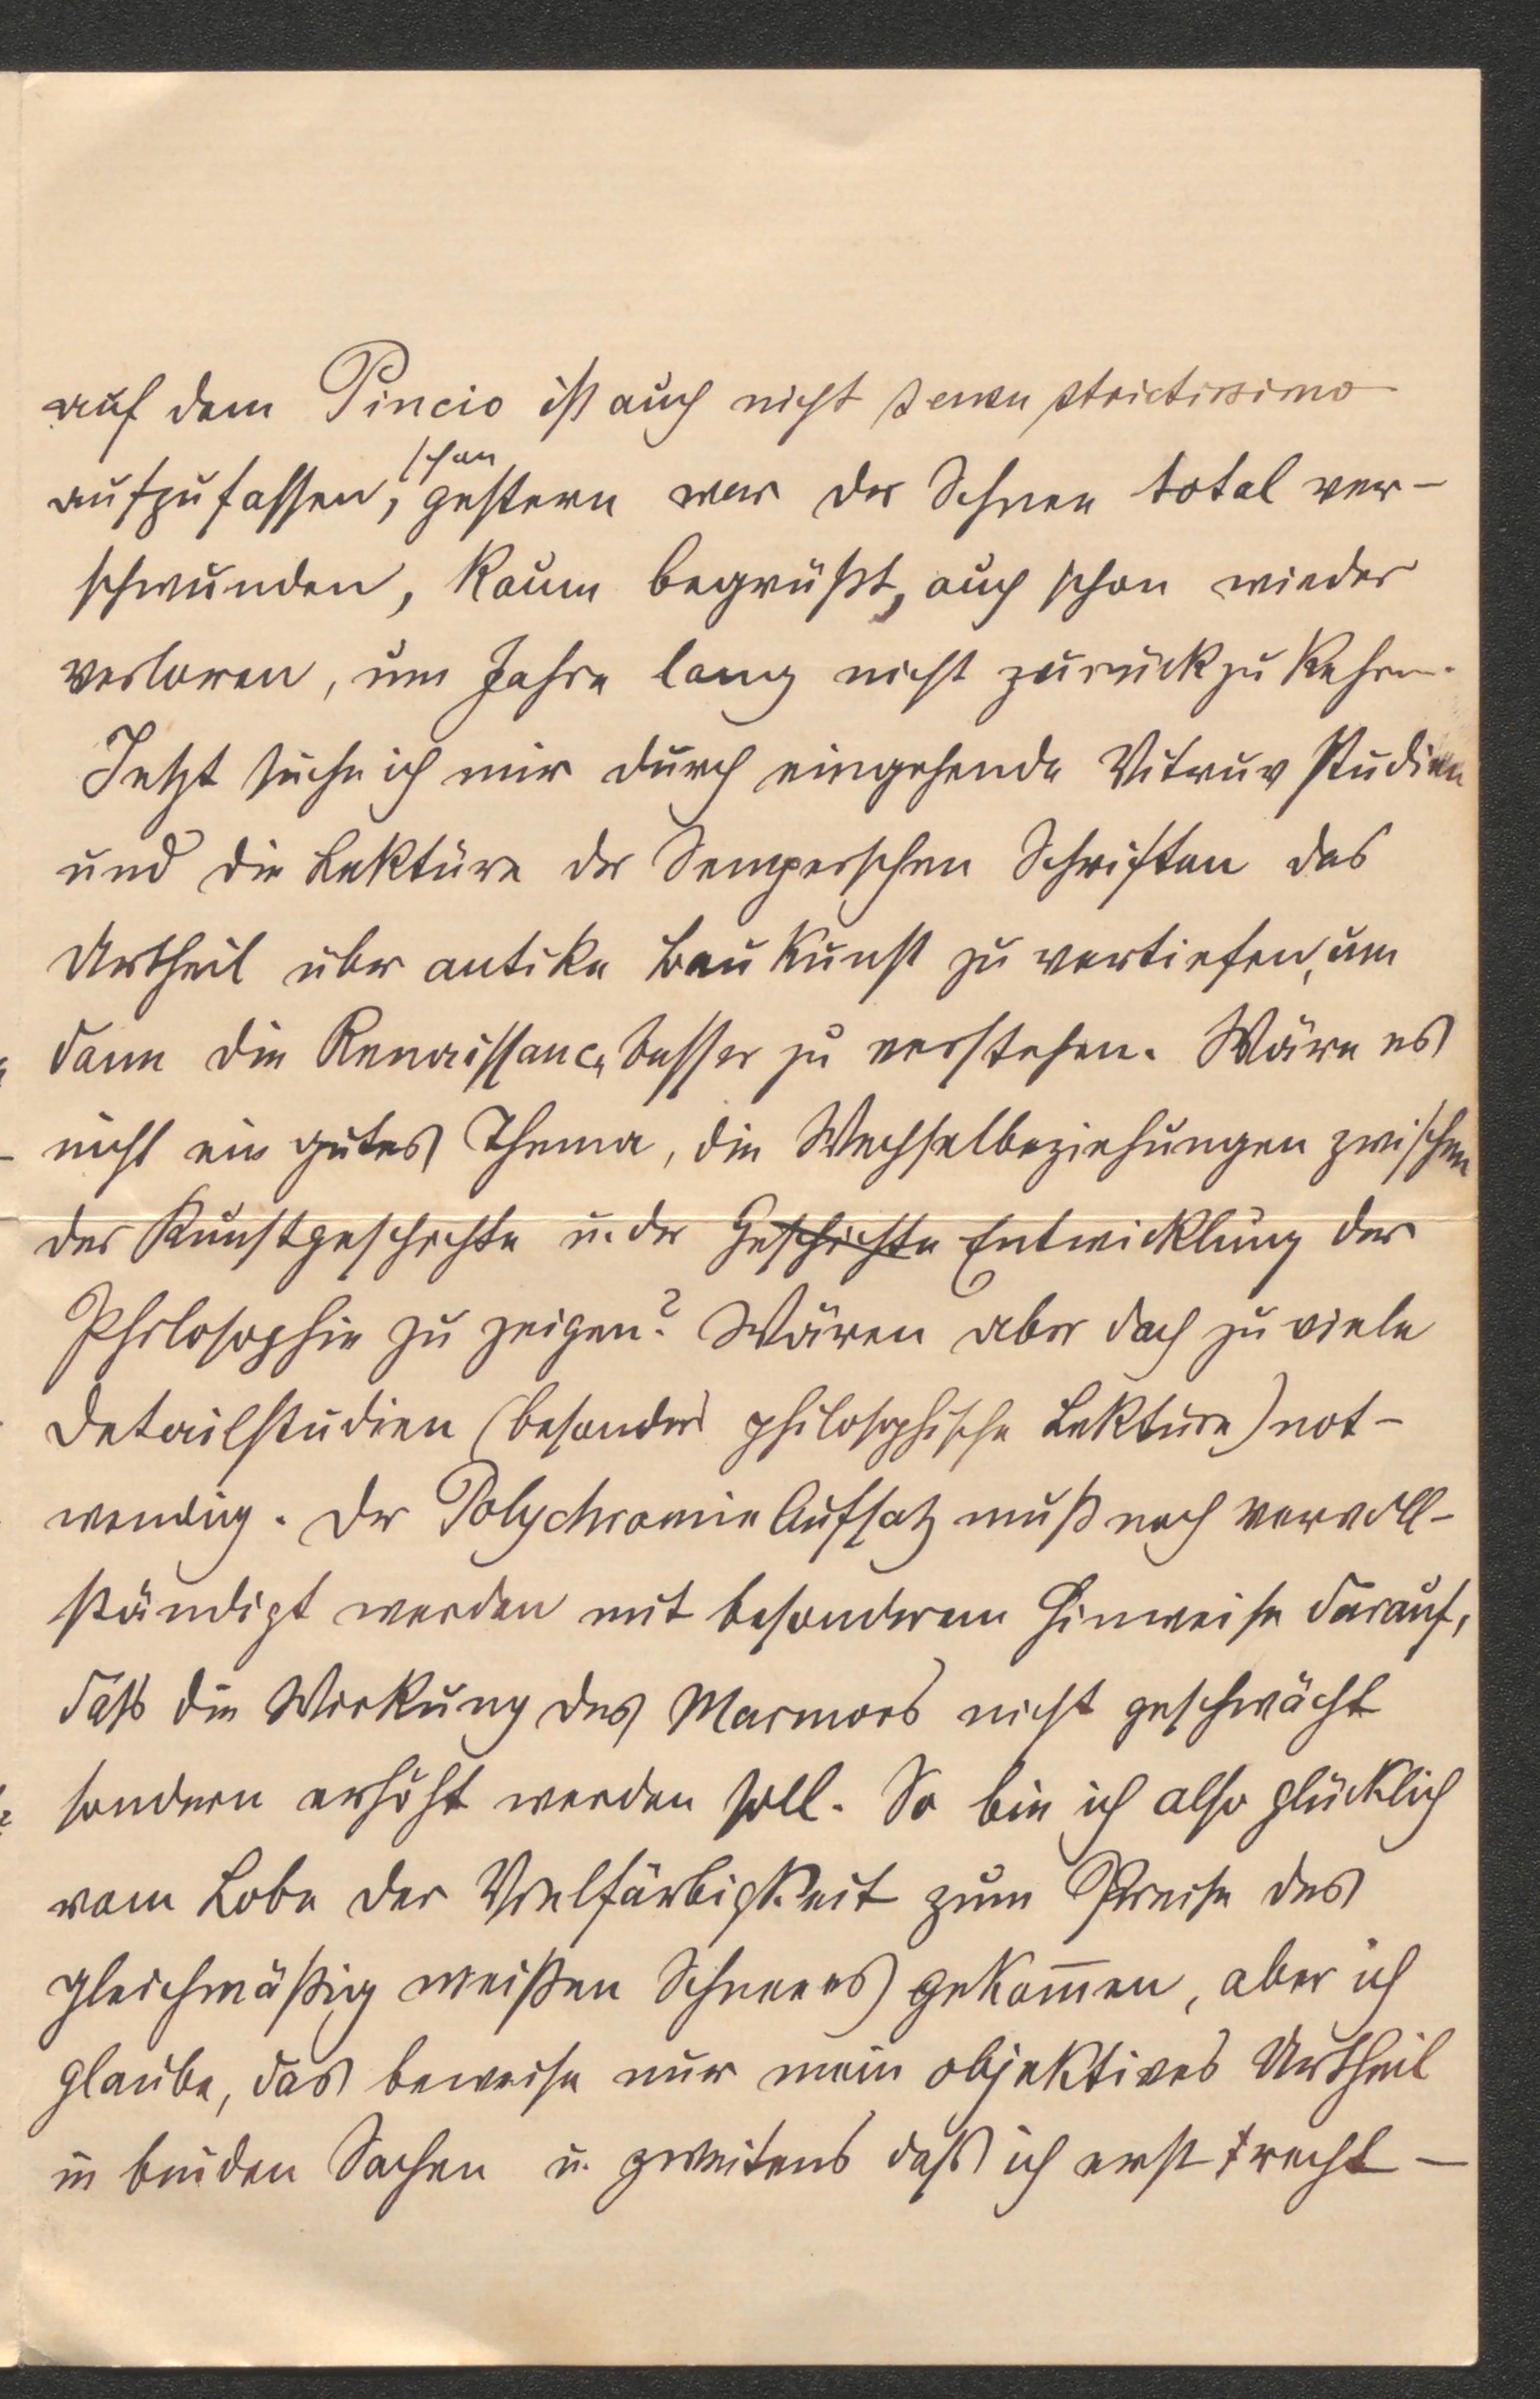 auf dem Pincio ist auch nicht sensu strictissimo
aufzufassen, schon gestern war der Schnee total ver-
schwunden, kaum begrüßt, auch schon wieder
verloren, um Jahre lang nicht zurückzukehren.
Jetzt suche ich mir durch eingehende Vitruv Studien
und die Lektüre der Semperschen Schriften das
Urtheil über antike Baukunst zu vertiefen, um
dann die Renaissance besser zu verstehen. Wäre es
nicht ein gutes Thema, die Wechselbeziehungen zwischen
der Kunstgeschichte u. der Geschichte Entwicklung der
Philosophie zu zeigen? Wären aber doch zu viele
Detailstudien (besonders philosophische Lektüre) not-
wendig. Der Polychromie Aufsatz muß noch vervoll-
ständigt werden mit besonderem Hinweise darauf,
daß die Wirkung des Marmors nicht geschwächt
sondern erhöht werden soll. So bin ich also glücklich
vom Lobe der Vielfärbigkeit zum Preise des
gleichmäßig weißen Schnees gekom̅en, aber ich
glaube, das beweise nur mein objektives Urtheil
in beiden Sachen u. zweitens daß ich erst recht –